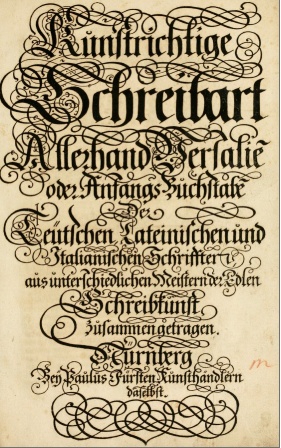 Kunstrichtige
Schreibart
Allerhand Versaliē
oder Anfangs Buchstabē
Der
Teütschen Lateinischen und
Italianischen Schrifften
aus unterschiedlichen Meistern der Edlen
Schreibkunst
zusammen getragen.
Nürnberg
Bey Paulus Fürsten Kunsthändlern
daselbst.